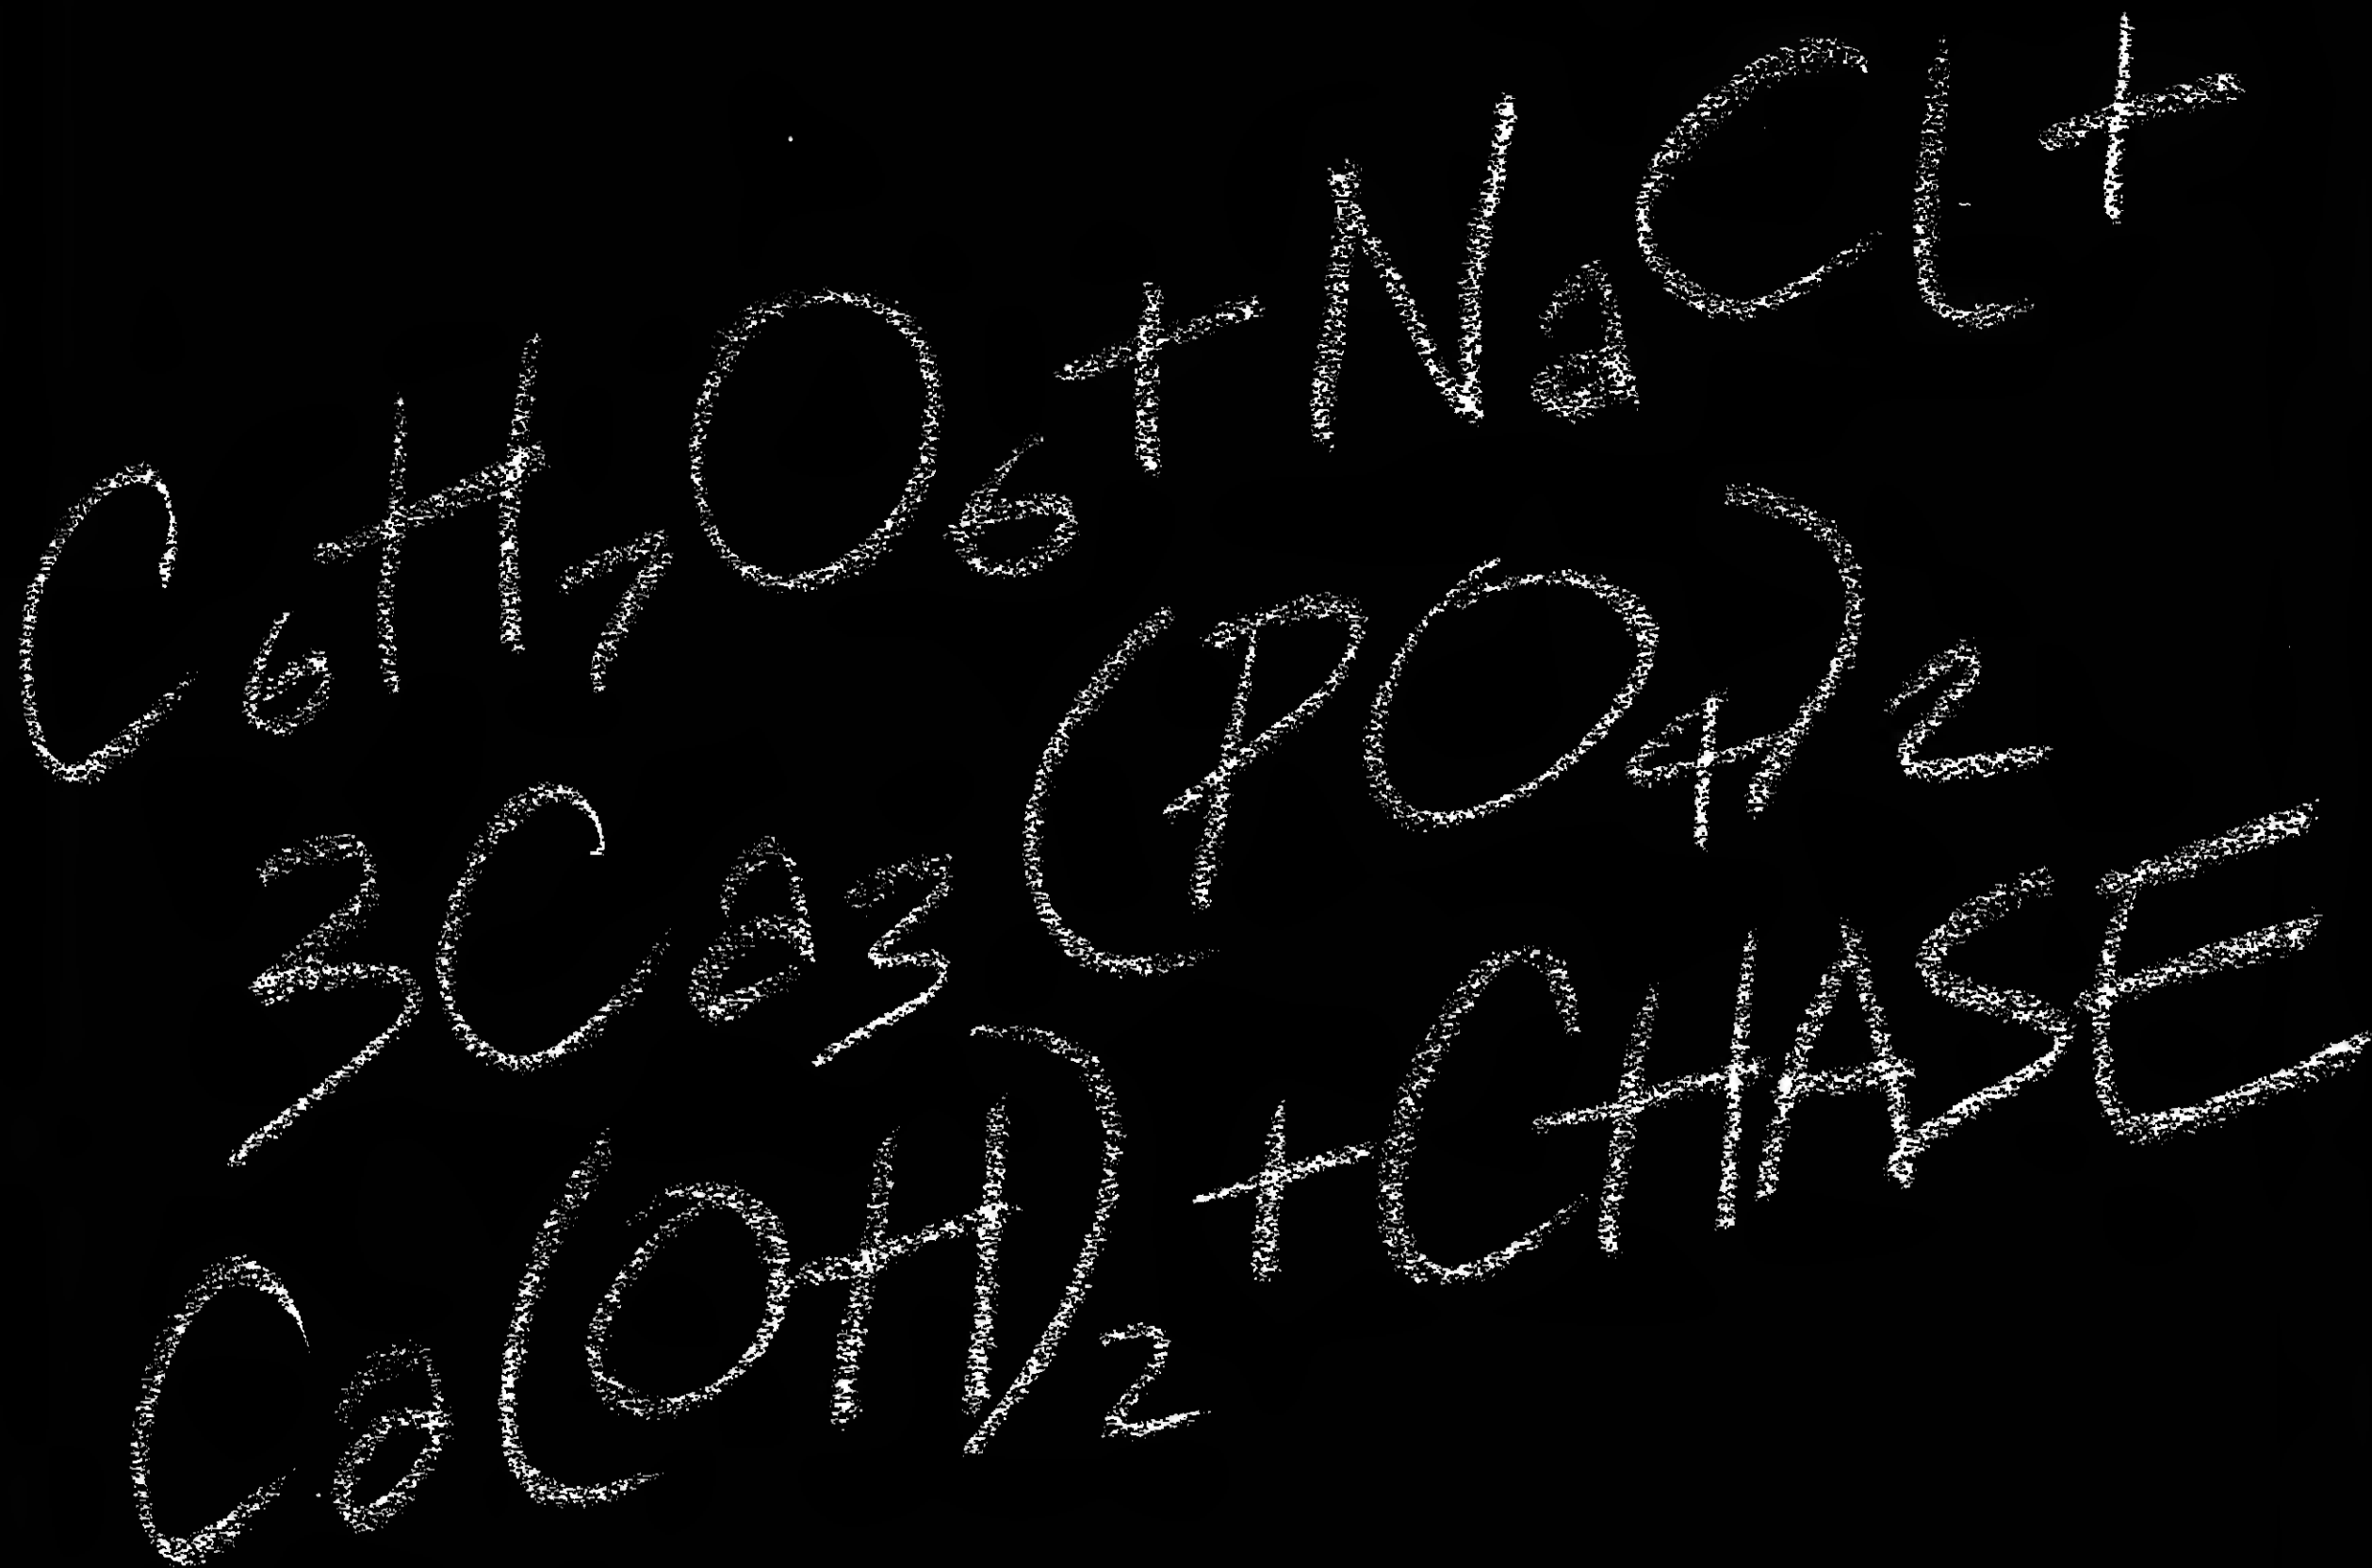 C₆H₇O₆+NaCl+
3Ca₃(PO₄)₂
Ca(OH)₂+CHASE